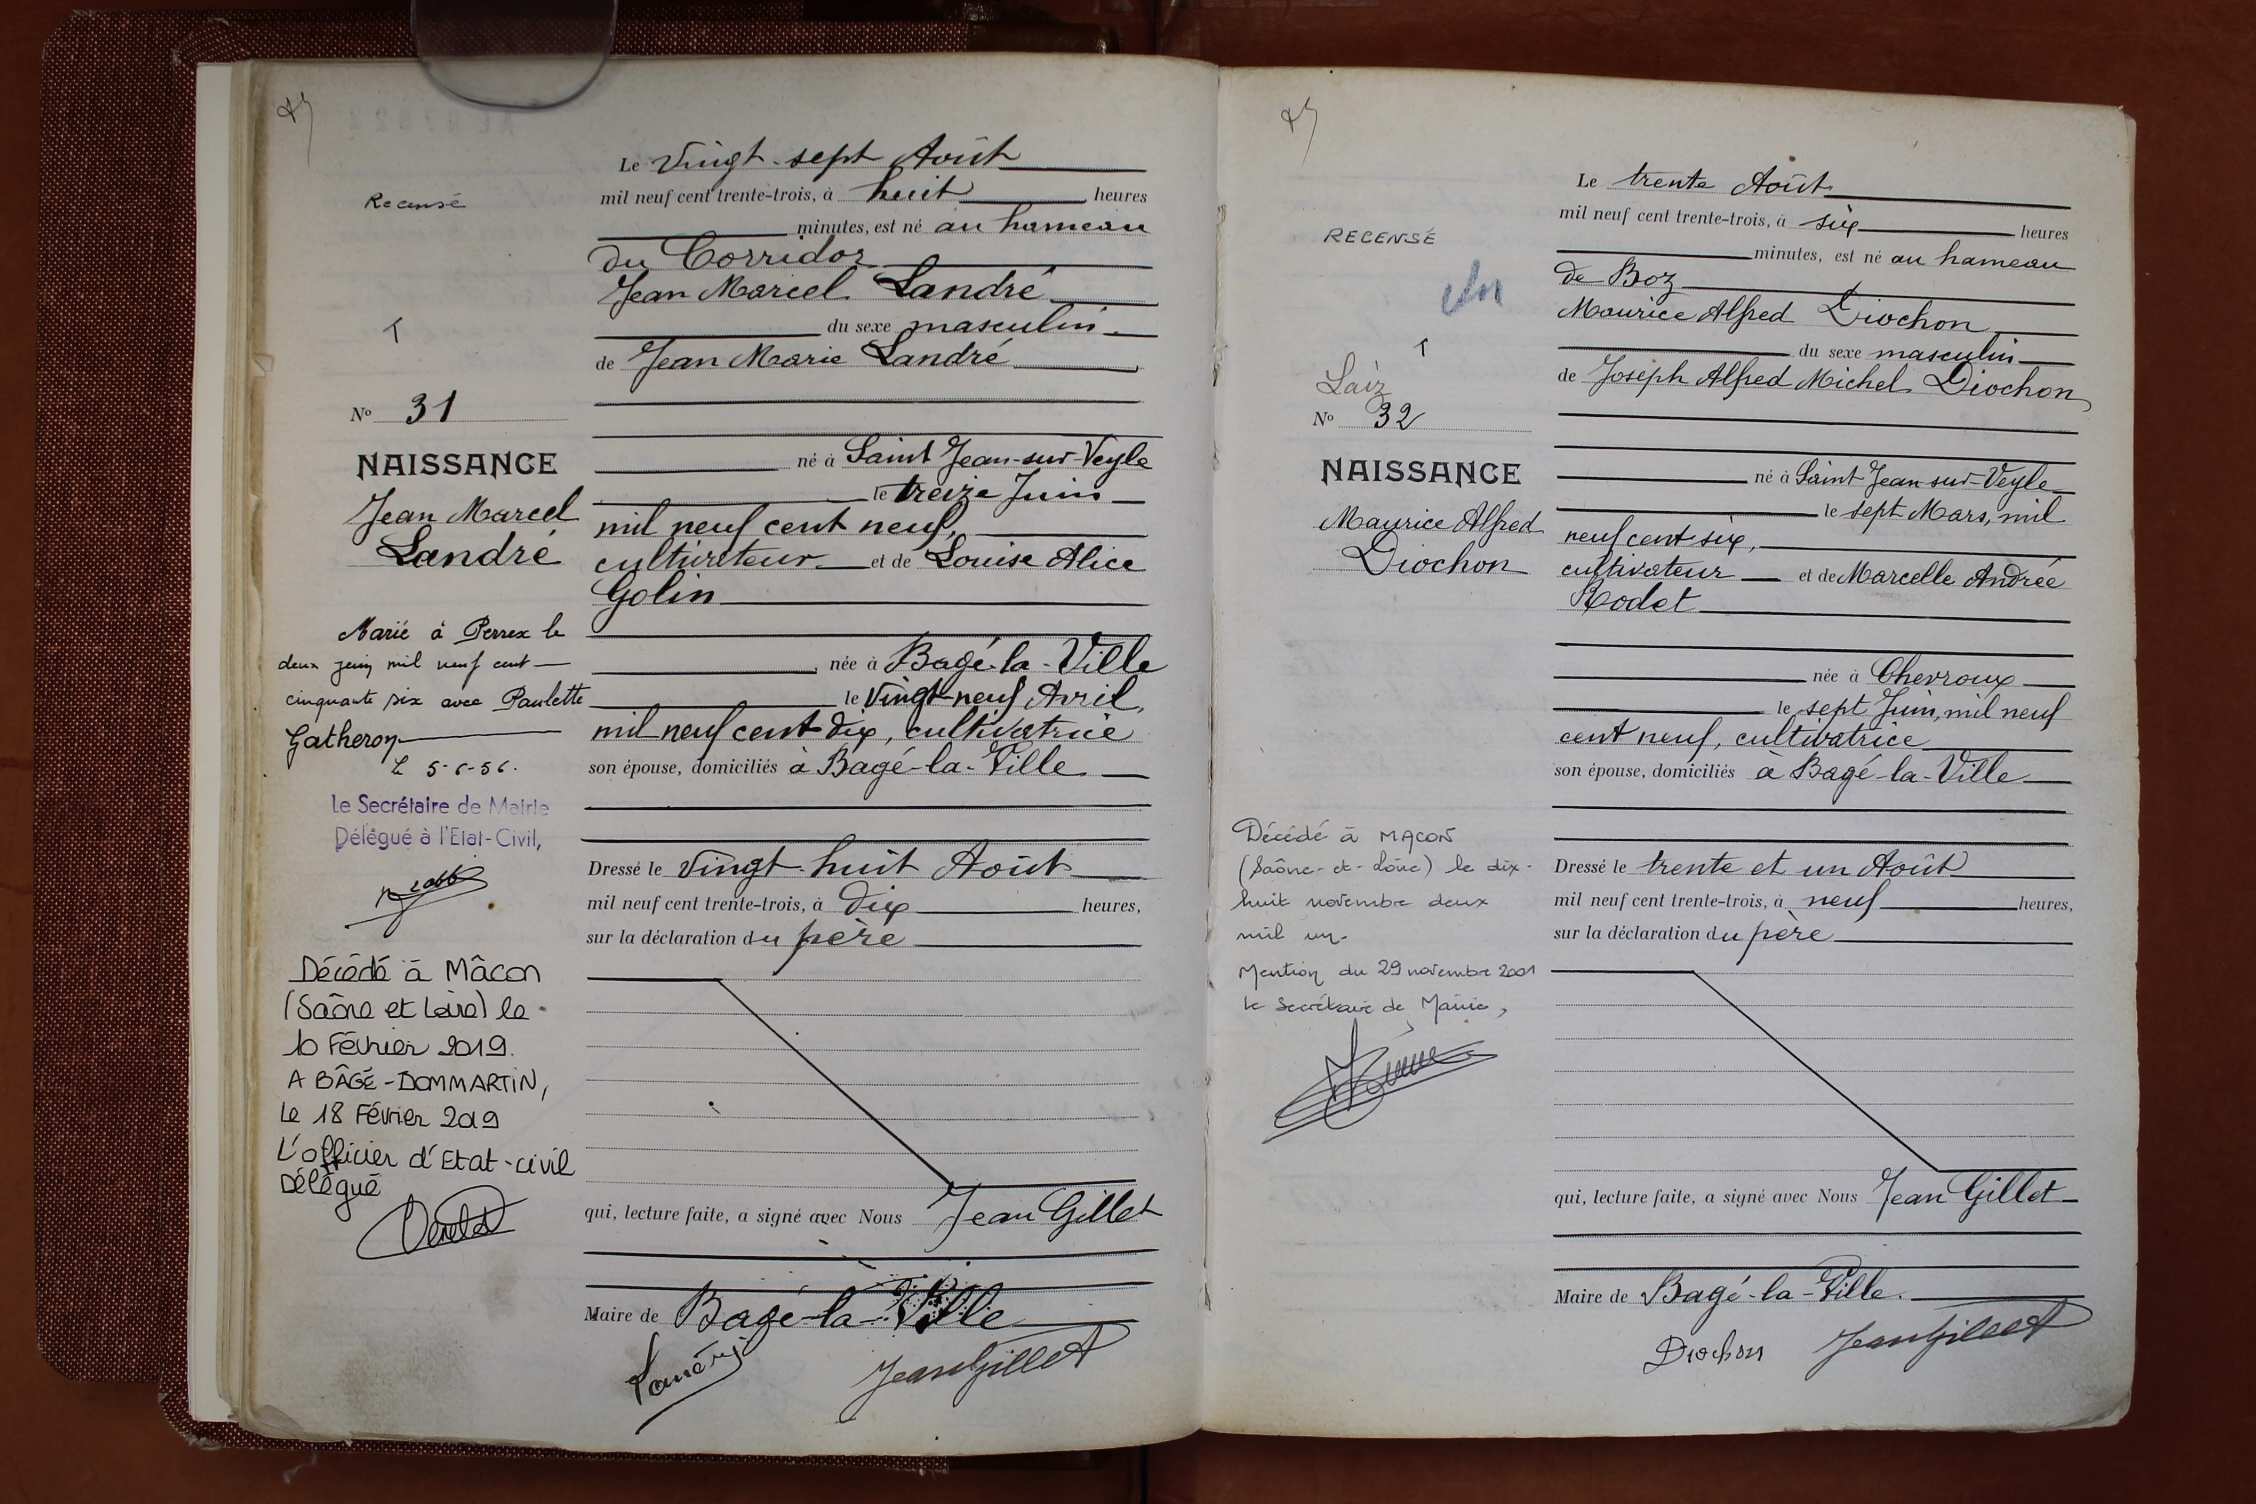 Le vingt-sept Août
mil neuf cent trente-trois, à huit heures
minutes, est né au hameau
du Corridor
Jean Marcel Landré
du sexe masculin
de Jean Marie Landré
né à Saint Jean-sur-Veyle
le treize Juin
mil neuf cent neuf,
cultivateur et de Louise Alice
Golin
née à Bagé-la-Ville
le vingt-neuf Avril,
mil neuf cent dix, cultivatrice
son épouse, domiciliés à Bagé-la-Ville
Dressé le vingt-huit Août
mil neuf cent trente-trois, à dix heures,
sur la déclaration du père
qui, lecture faite, a signé avec Nous Jean Gillet
Maire de Bagé-la-Ville
Landré
Jean Gillet
Recensé
T
No 31
NAISSANCE
Jean Marcel
Landré
Marié à Perrex le
deux juin mil neuf cent
cinquante six avec Paulette
Gatheron
L 5-6-56.
Le Secrétaire de Mairie
Délégué à l'Etat-Civil,
Décédé à Mâcon
(Saône et Loire) le
10 Février 2019.
A BÂGÉ-DOMMARTIN,
Le 18 Février 2019
L'officier d'Etat-civil
Délégué
Le trente Août
mil neuf cent trente-trois, à six heures
minutes, est né au hameau
de Boz
Maurice Alfred Diochon
du sexe masculin
de Joseph Alfred Michel Diochon
né à Saint Jean-sur-Veyle
le sept Mars, mil
neuf cent six,
cultivateur et de Marcelle Andrée
Rodet
née à Chevroux
le sept Juin, mil neuf
cent neuf, cultivatrice
son épouse, domiciliés à Bagé-la-Ville
Dressé le trente et un Août
mil neuf cent trente-trois, à neuf heures,
sur la déclaration du père
qui, lecture faite, a signé avec Nous Jean Gillet
Maire de Bagé-la-Ville.
Diochon Jean Gillet
RECENSÉ
T
Laiz
No 32
NAISSANCE
Maurice Alfred
Diochon
Décédé à MACON
(Saône-et-Loire) le dix-
huit novembre deux
mil un.
Mention du 29 novembre 2001
Le Secrétaire de Mairie,